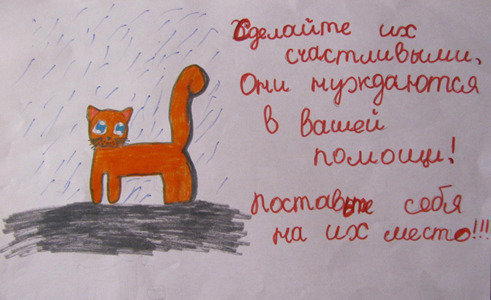 Сделайте их
счастливыми.
Они нуждаются
в вашей
помощи!
поставьте себя
на их место!!!